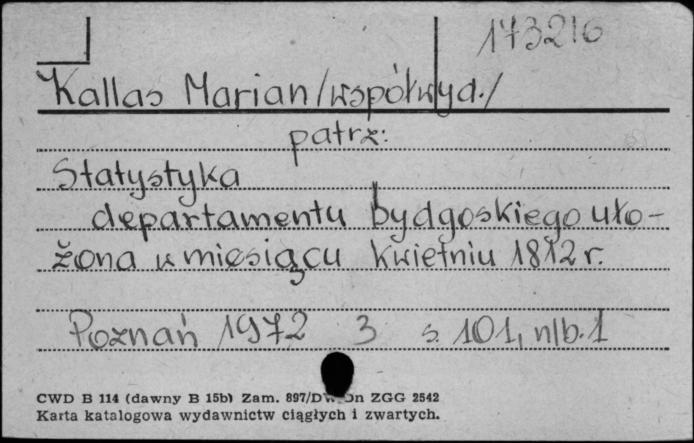 173216
Kallas Marian /współwyd./
patrz:
Statystyka
departamentu bydgoskiego uło-
żona w miesiącu kwietniu 1812 r.
Poznań 1972 3 s. 101, nlb. 1
CWD B 114 (dawny B 15b) Zam. 897/DW Dn ZGG 2542
Karta katalogowa wydawnictw ciągłych i zwartych.